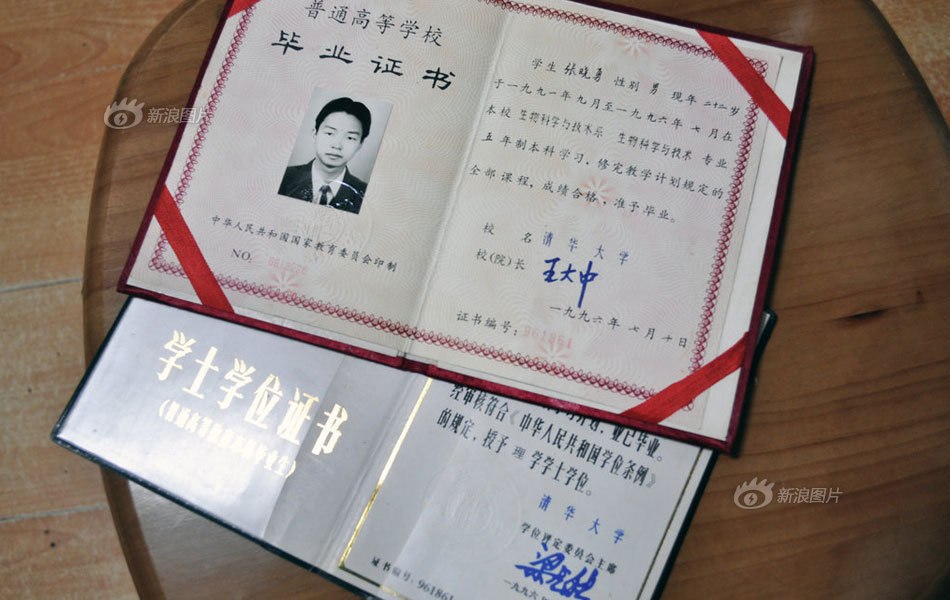 普通高等学校
毕业证书
中华人民共和国国家教育委员会印制
NO.
学生 张晓勇 性别 男 现年 二十二 岁
于一九九一年 九 月至一九九六年 七 月在
本校 生物科学与技术系 生物科学与技术 专业
五 年制本科学习，修完教学计划规定的
全部课程，成绩合格，准予毕业。
校 名 清华大学
校(院)长 王大中
一九九六年 七 月 十 日
证书编号：961861
学士学位证书
经审核符合《中华人民共和国学位条例》
的规定，授予 理 学学士学位。
清华大学
学位评定委员会主席
证书编号：961861
新浪图片
新浪图片